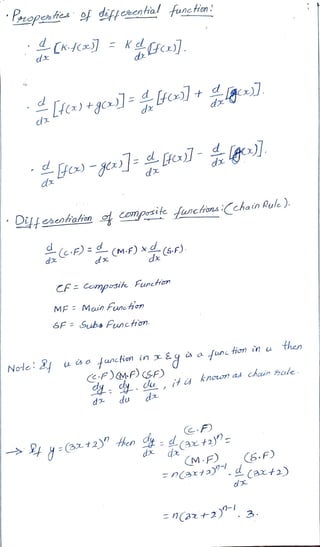 • Properties of differential function:
• d/dx [K·f(x)] = K d/dx [f(x)].
• d/dx [f(x) + g(x)] = d/dx [f(x)] + d/dx [g(x)].
• d/dx [f(x) - g(x)] = d/dx [f(x)] - d/dx [g(x)].
• Differentiation of composite functions: (chain Rule).
d/dx (C.F) = d/dx (M.F) x d/dx (S.F).
CF = Composite Function
MF = Main Function
SF = Sub Function.
Note: If u is a function in x & y is a function in u then
(C.F) (M.F) (S.F)
dy/dx = dy/du · du/dx, it is known as chain rule.
(C.F)
→ If y = (3x+2)ⁿ then dy/dx = d/dx (3x+2)ⁿ =
(M.F) (S.F)
= n(3x+2)ⁿ⁻¹ · d/dx (3x+2)
= n(3x+2)ⁿ⁻¹ . 3.